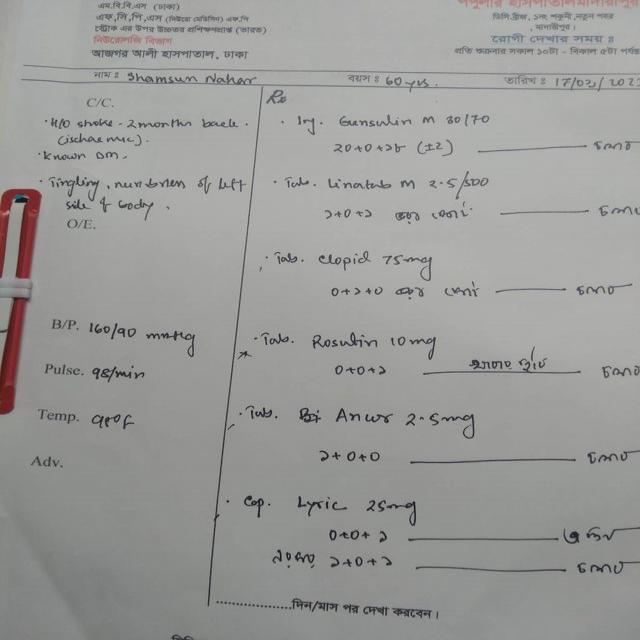 এম.বি.বি.এস (ঢাকা)
এফ,সি,পি,এস (নিউরো মেডিসিন) এফ,পি
স্ট্রোক এর উপর উচ্চতর প্রশিক্ষণপ্রাপ্ত (ভারত)
নিউরোলজি বিভাগ
আজগর আলী হাসপাতাল, ঢাকা
পপুলার হাসপাতাল মাদারীপুর
ডিসি.ব্রীজ, ১নং শকুনী, নতুন শহর
, মাদারীপুর।
রোগী দেখার সময় ঃ
প্রতি শুক্রবার সকাল ১০টা - বিকাল ৫টা পর্যন্ত
নাম ঃ Shamsun Nahar বয়স ঃ 60 yrs. তারিখ ঃ 17/02/202
C/C.
· H/O stroke - 2 months back.
(ischaemic).
· Known DM.
· Tingling, numbness of left
side of body.
O/E.
B/P. 160/90 mmHg
Pulse. 98/min
Temp. 98°F
Adv.
Rx
· Inj. Gensulin M 30/70
20+0+18 (±2) চলবে
· Tab. Linatab M 2.5/500
১+0+১ চলবে
· Tab. Clopid 75mg
0+১+0 চলবে
· Tab. Rosutin 10mg
0+0+১ চলবে
· Tab. Ancor 2.5mg
১+0+0 চলবে
· Cap. Lyric 25mg
0+0+১
১+0+১ চলবে
..................দিন/মাস পর দেখা করবেন।